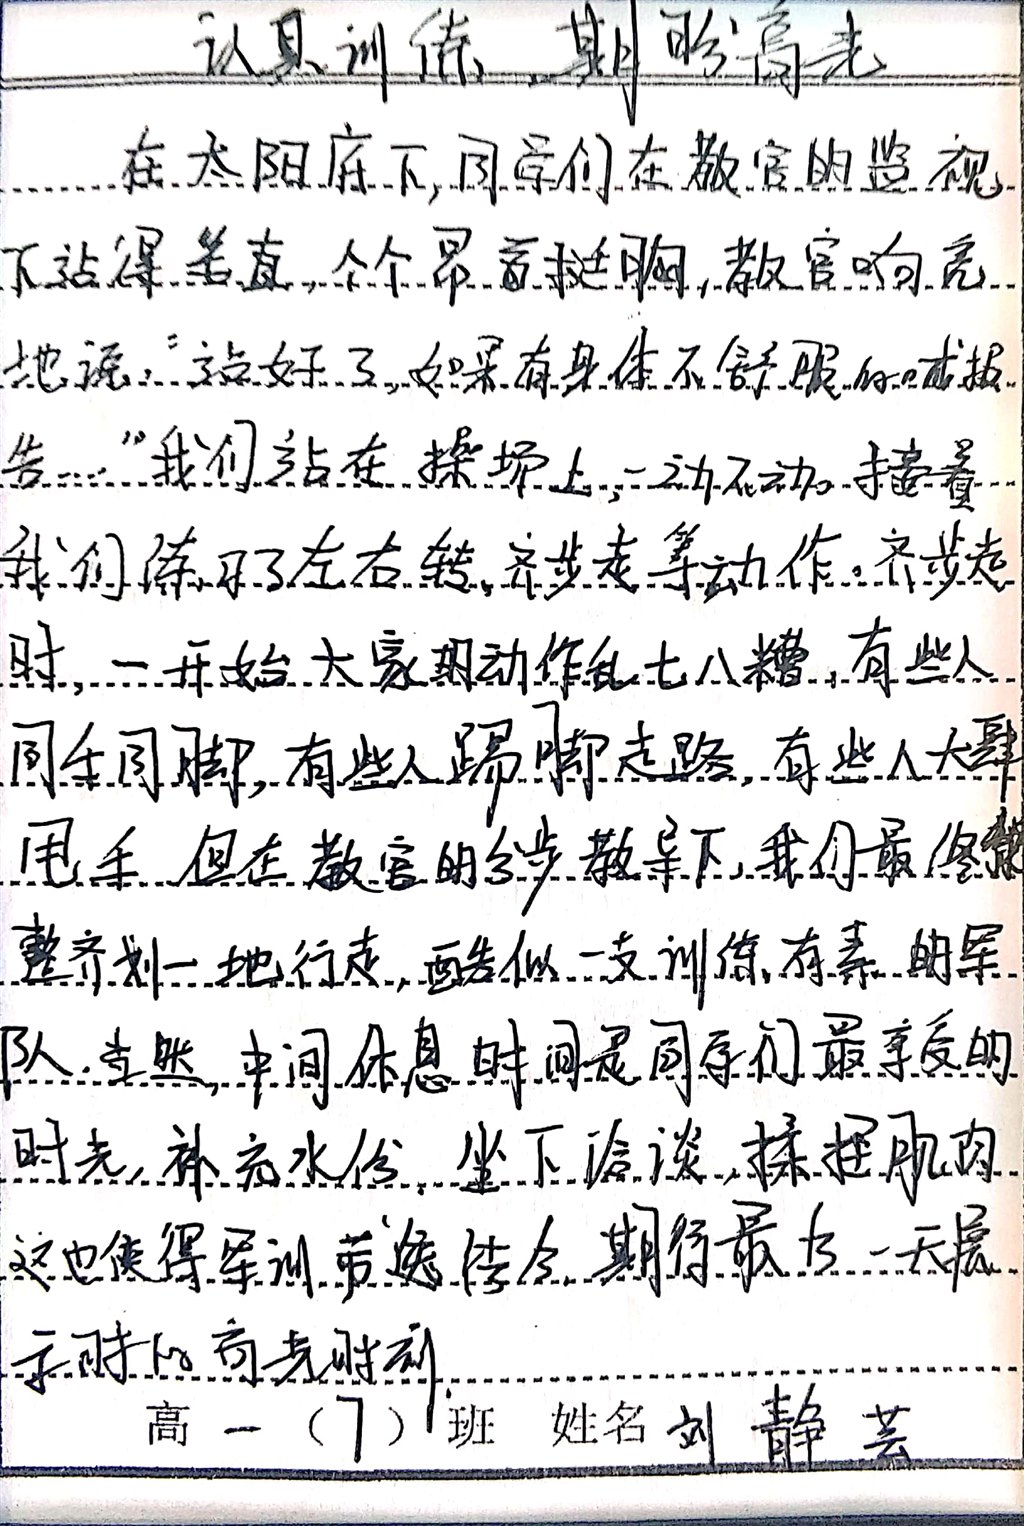 认真训练，期盼高光
在太阳底下，同学们在教官的监视
下站得笔直，个个昂首挺胸，教官响亮
地说：“站好了，如果有身体不舒服的喊报
告……”我们站在操场上，一动不动。接着
我们练习了左右转，齐步走等动作。齐步走
时，一开始大家的动作乱七八糟，有些人
同手同脚，有些人踢脚走路，有些人大肆
甩手，但在教官的分步教导下，我们最终能
整齐划一地行走，酷似一支训练有素的军
队。当然，中间休息时间是同学们最享受的
时光，补充水份，坐下洽谈，揉捏肌肉
这也使得军训劳逸结合，期待最后一天展
示时的高光时刻。
高一（7）班 姓名 刘静芸